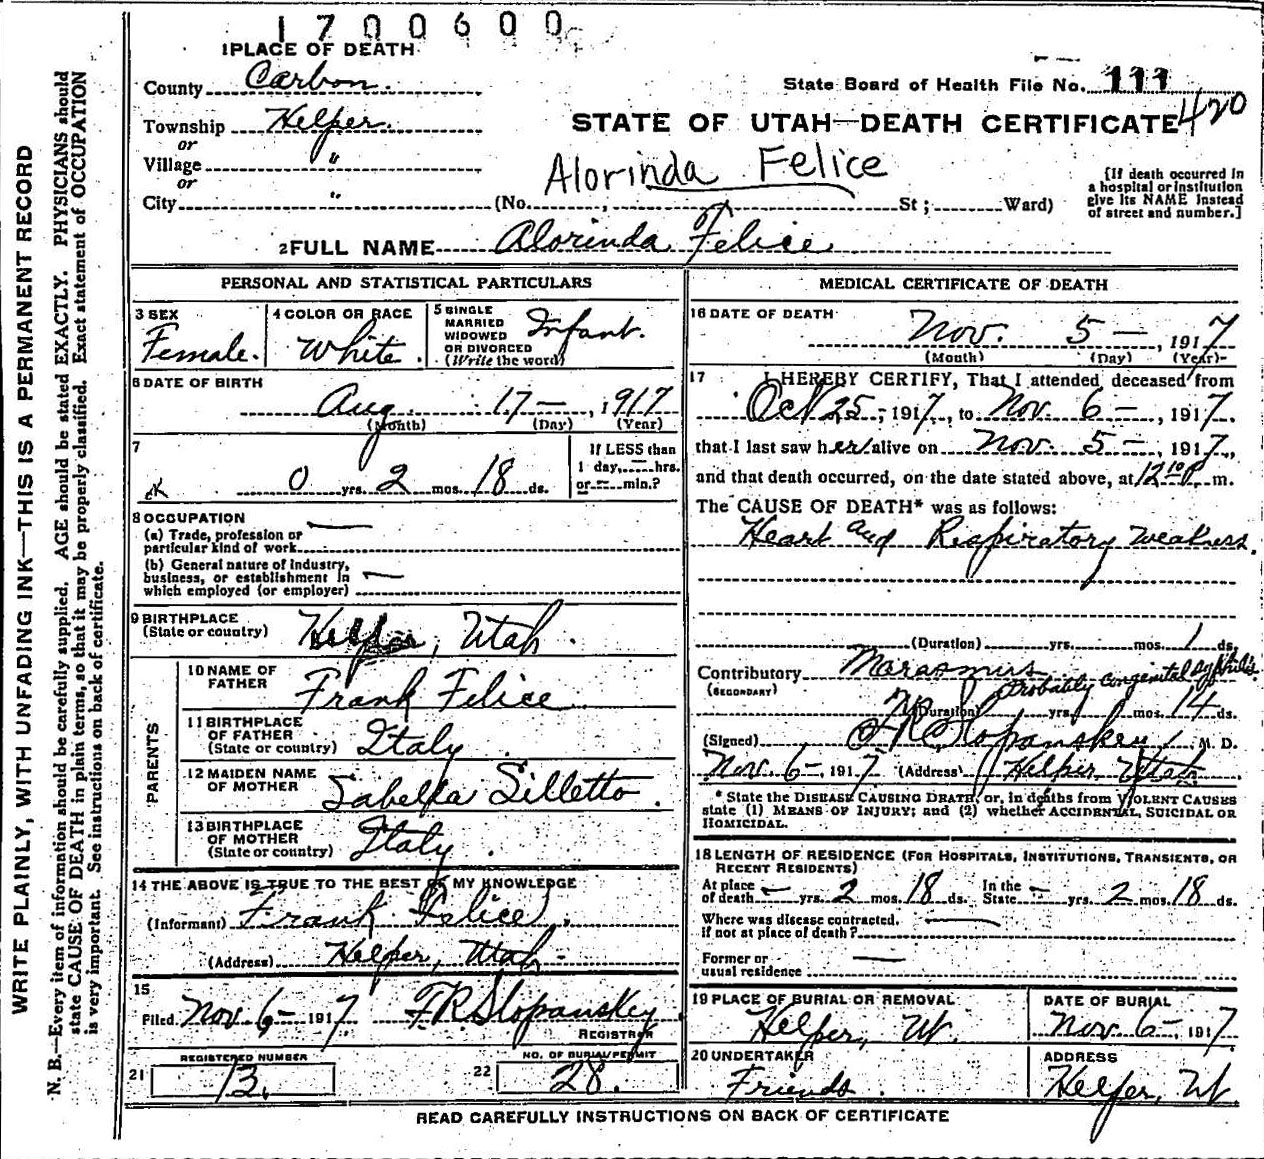 1700600
1 PLACE OF DEATH
County Carbon.
State Board of Health File No. 111
Township Helper.
STATE OF UTAH—DEATH CERTIFICATE 420
or
Village "
Alorinda Felice
or
City " (No. , St ; Ward)
[If death occurred in
a hospital or institution
give its NAME instead
of street and number.]
2 FULL NAME Alorinda Felice
PERSONAL AND STATISTICAL PARTICULARS
3 SEX
Female.
4 COLOR OR RACE
White.
5 SINGLE
MARRIED
WIDOWED
OR DIVORCED
(Write the word)
Infant.
6 DATE OF BIRTH
Aug. 17— , 1917
(Month) (Day) (Year)
7
0 yrs. 2 mos. 18 ds.
If LESS than
1 day, — hrs.
or — min.?
8 OCCUPATION
(a) Trade, profession or
particular kind of work —
(b) General nature of Industry,
business, or establishment in
which employed (or employer) —
9 BIRTHPLACE
(State or country) Helper, Utah.
PARENTS
10 NAME OF
FATHER Frank Felice
11 BIRTHPLACE
OF FATHER
(State or country) Italy.
12 MAIDEN NAME
OF MOTHER Isabella Silletto.
13 BIRTHPLACE
OF MOTHER
(State or country) Italy.
14 THE ABOVE IS TRUE TO THE BEST OF MY KNOWLEDGE
(Informant) Frank Felice.
(Address) Helper, Utah-
15
Filed Nov. 6- 1917 F R Slopanskey
REGISTRAR
REGISTERED NUMBER
21 13.
NO. OF BURIAL PERMIT
22 28.
MEDICAL CERTIFICATE OF DEATH
16 DATE OF DEATH
Nov. 5— , 1917
(Month) (Day) (Year)
17 I HEREBY CERTIFY, That I attended deceased from
Oct 25, 1917, to Nov. 6—, 1917.
that I last saw her alive on Nov. 5—, 1917,
and that death occurred, on the date stated above, at 12 10 P. m.
The CAUSE OF DEATH* was as follows:
Heart and Respiratory weakness.
(Duration) yrs. mos. 1 ds.
Contributory Marasmus
(SECONDARY) Probably congenital syphilis
(Duration) yrs. mos. 14 ds.
(Signed) F R Slopanskey, M. D.
Nov. 6-, 1917 (Address) Helper Utah.
* State the DISEASE CAUSING DEATH, or, in deaths from VIOLENT CAUSES
state (1) MEANS OF INJURY; and (2) whether ACCIDENTAL, SUICIDAL OR
HOMICIDAL.
18 LENGTH OF RESIDENCE (FOR HOSPITALS, INSTITUTIONS, TRANSIENTS, OR
RECENT RESIDENTS)
At place
of death — yrs. 2 mos. 18 ds.
In the
State — yrs. 2 mos. 18 ds.
Where was disease contracted.
if not at place of death? —
Former or
usual residence —
19 PLACE OF BURIAL OR REMOVAL
Helper, Ut.
DATE OF BURIAL
Nov. 6- 1917.
20 UNDERTAKER
Friends.
ADDRESS
Helper, Ut.
READ CAREFULLY INSTRUCTIONS ON BACK OF CERTIFICATE
WRITE PLAINLY, WITH UNFADING INK—THIS IS A PERMANENT RECORD
N. B.—Every item of information should be carefully supplied. AGE should be stated EXACTLY. PHYSICIANS should
state CAUSE OF DEATH in plain terms, so that it may be properly classified. Exact statement of OCCUPATION
is very important. See instructions on back of certificate.